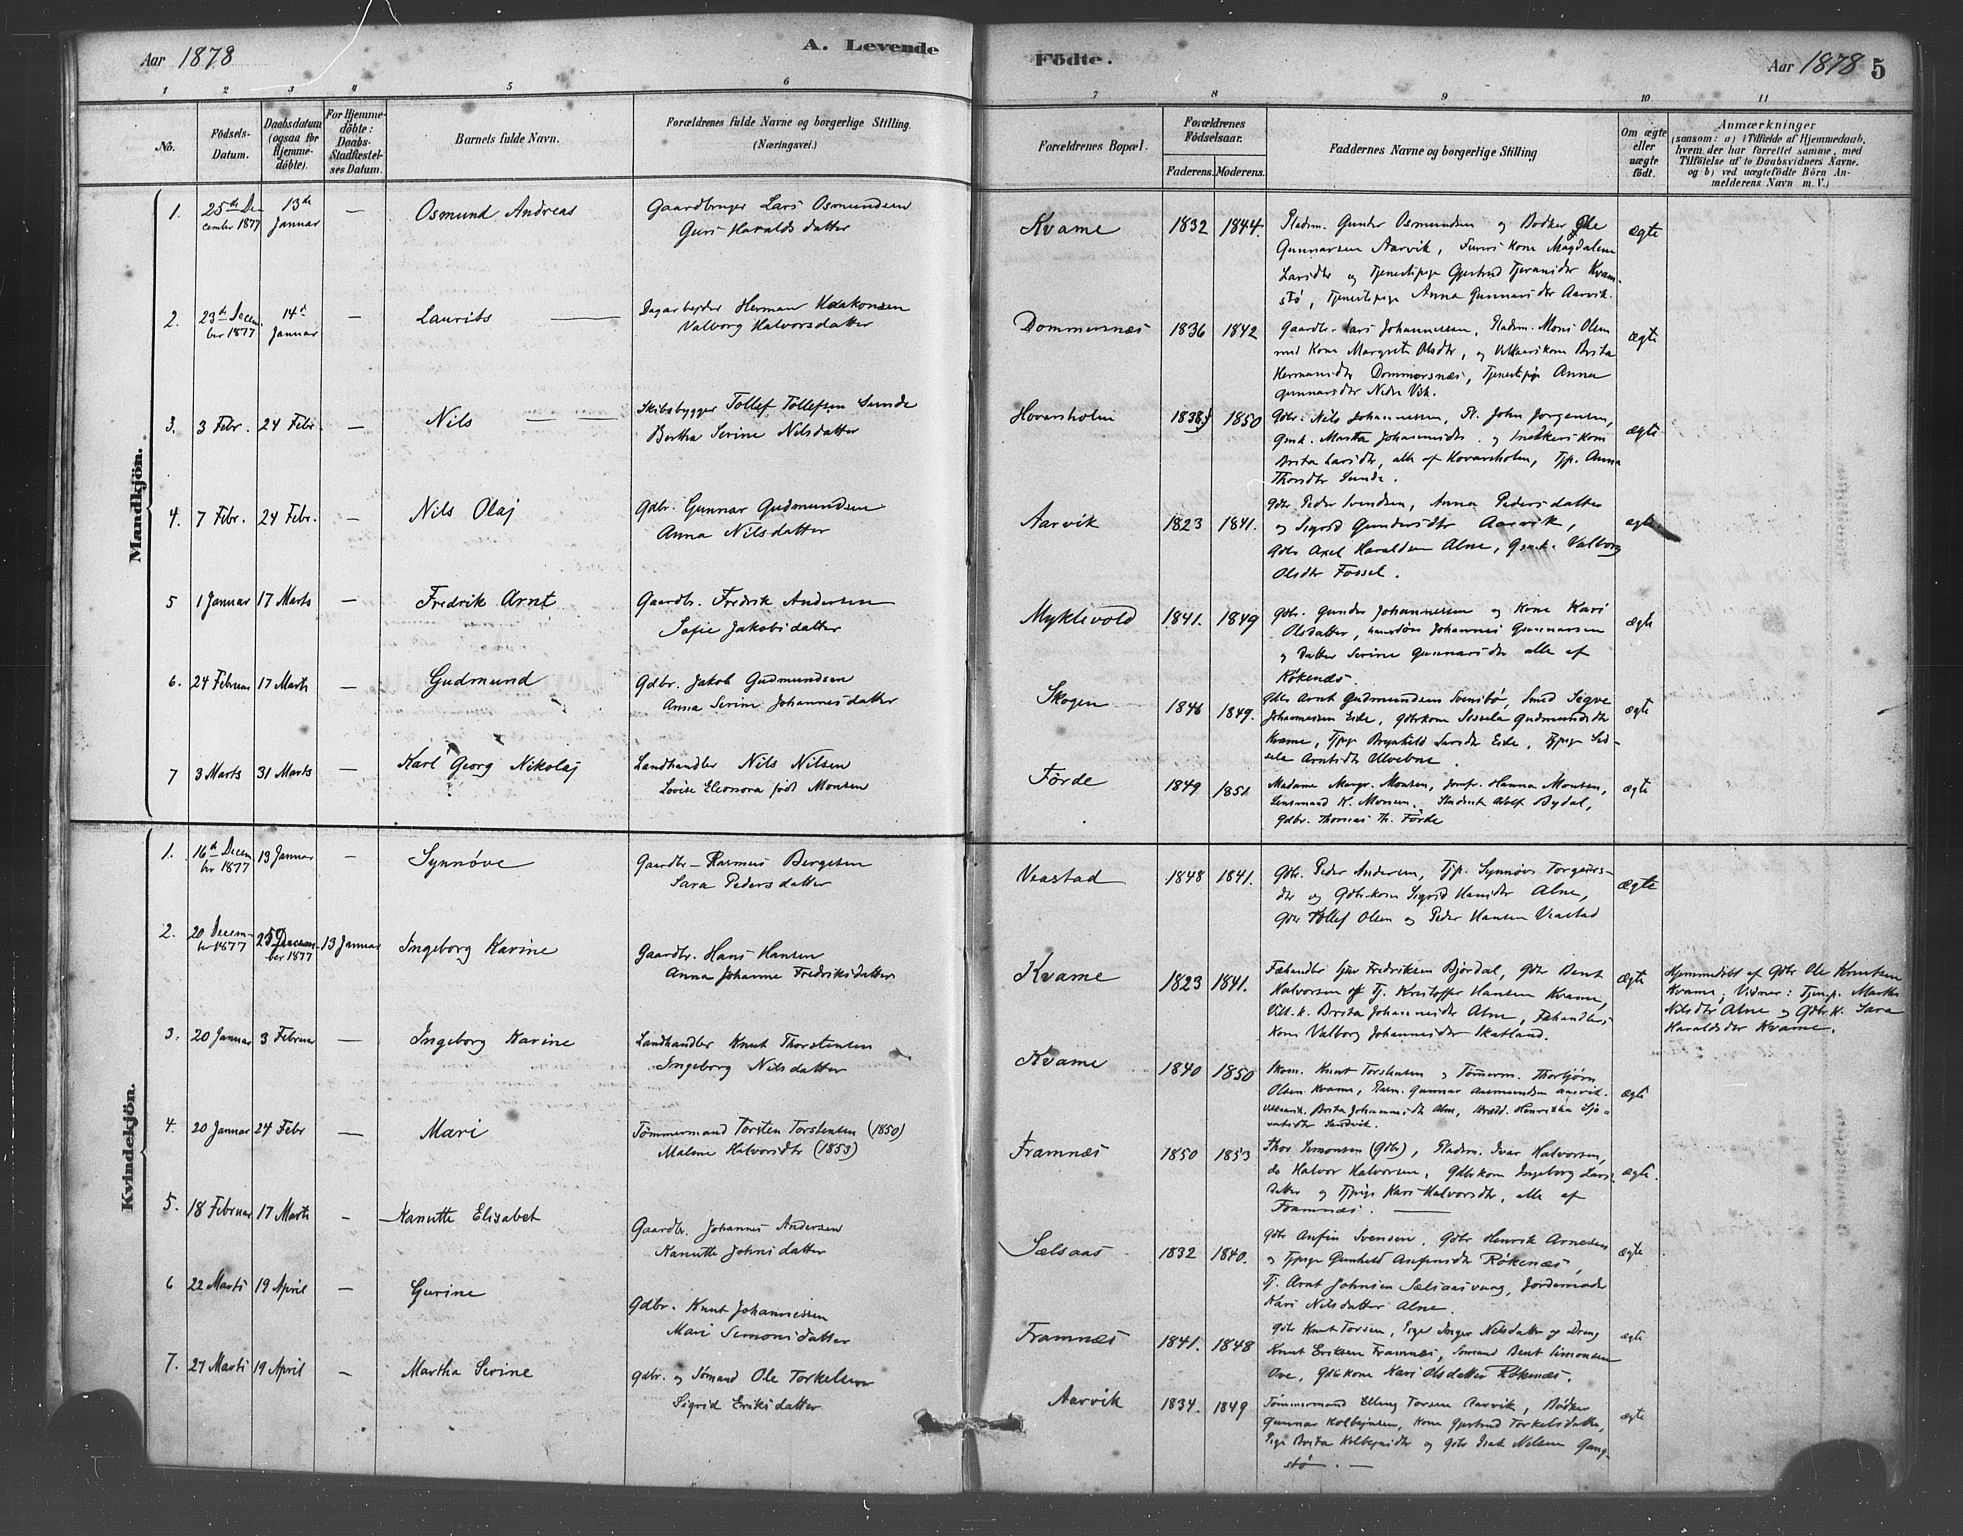 Aar 1878
A. Levende
Födte.
Aar 1878
5
1 2 3 4 5 6 7 8 9 10 11
No.
Födsels-
Datum.
Daabsdatum
(ogsaa for
Hjemme-
döbte).
For Hjemme-
döbte:
Daabs-
Stadfæstel-
ses Datum.
Barnets fulde Navn.
Forældrenes fulde Navne og borgerlige Stilling.
(Næringsvei.)
Forældrenes Bopæl.
Forældrenes
Födselsaar.
Faderens. Moderens.
Faddernes Navne og borgerlige Stilling
Om ægte
eller
uægte
födt.
Anmærkninger
(saasom: a) i Tilfælde af Hjemmedaab,
hvem der har forrettet samme, med
Tilföielse af to Daabsvidners Navne.
og b) ved uægtefödte Börn An-
melderens Navn m. V.)
Mandkjön.
1. 25de De- 13de — Osmund Andreas Gaardbruger Lars Osmundsen
cember 1877 Januar Guri Haraldsdatter
Kvame 1832 1844. Pladsm. Gunder Osmundsen og Bødker Ole ægte
Gunnarsen Aarvik, kone Magdalene
Larsdtr og Tjenestepige Gjertrud Kvam-
stø, Tjenestepige Anna Gunnarsdtr Aarvik.
2. 23de Decem- 14de — Laurits Dagarbejder Herman Haakonsen
ber 1877 Januar Valborg Halvorsdatter
Dommersnæs 1836 1842 Gaardbr. Lars Johannessen, Pladsm. Mons Olsen ægte
med Kone Margrete Olsdtr, og Brita
Hermansdtr Dommersnæs, Tjenestepige Anna
Gunnarsdtr Nedre Vik.
3. 3 Febr. 24 Febr. — Nils Skibsbygger Tollef Tollefsen Sunde
Bertha Serine Nilsdatter
Hovarsholm 1850 Gdbr. Nils Johannessen, Pl. John Jørgensen, ægte
Gmk. Martha Johannesdtr. og kone
Brita Larsdtr, alle af Hovarsholm, Tjp. Anna
Thorsdtr Sunde.
4. 7 Febr. 24 Febr. — Nils Olaj Gdbr. Gunnar Gudmundsen
Anna Nilsdatter
Aarvik 1823 1841. Gdbr Peder Svendsen, Anna Pedersdatter ægte
og Sigrid Gundersdtr Aarvik,
Gdbr Axel Haraldsen Alne, Gmk. Valborg
Olsdtr Fossel.
5 1 Januar 17 Marts — Fredrik Arnt Gaardbr. Fredrik Andersen
Sofie Jakobsdatter
Myklevold 1841. 1849 Gdbr. Gunder Johannessen og Kone Kari ægte
Olsdatter, Johannes Gunnarsen
og Datter Serine Gunnarsdtr alle af
Røkenæs.
6. 24 Februar 17 Marts — Gudmund Gdbr. Jakob Gudmundsen
Anna Serine Johannesdatter
Skogen 1846 1849. Gdbr Arnt Gudmundsen Svensbø, Smed Sigve ægte
Johannessen Eide, Gdbrkone Sissela Gudmundsdtr
Kvame, Tjpige Brynhild Larsdtr Eide, Tjpige Sis-
sela Arntsdtr Ulvebne.
7 3 Marts 31 Marts — Karl Georg Nikolaj Landhandler Nils Nilsen
Lovise Eleonora født Monsen
Förde 1849 1851 Madame Margr. Monsen, Jomfr. Hanna Monsen, ægte
Lensmand K. Monsen, Student Adolf Bydal,
Gdbr. Thomas Th. Förde
Kvindekjön.
1. 16de Decem- 13 Januar — Synnøve Gaardbr. Rasmus Bergesen
ber 1877 Sara Pedersdatter
Veastad 1848 1841. Gdbr. Peder Andersen, Tjp. Synnøve Torgeirs- ægte
dtr og Gdbrkone Sigrid Hansdtr Alne,
Gdbr Tollef Olsen og Peder Hansen Veastad
2. 20 Decem- 25 Decem- 13 Januar Ingeborg Karine Gaardbr. Hans Hansen
ber 1877 ber 1877 Anna Johanne Fredriksdatter
Kvame 1823 1841. Fæhandler Fredriksen Bjordal, Gdbr Bent ægte Hjemmedöbt af Gdbr Ole Knutsen
Halvorsen og Tj. Kristoffer Hansen Kvame, Kvame, Vidner: Tjenp. Martha
Brita Johannesdtr Alne, Fæhandler- Nilsdtr Alne og Gdbrk. Sara
kone Valborg Johannesdtr Skatland. Haraldsdtr Kvame.
3. 20 Januar 3 Februar — Ingeborg Karine Landhandler Knut Thorstensen
Ingeborg Nilsdatter
Kvame 1840 1850 Skom. Knut Torstensen og Tømmerm. Thorbjørn ægte
Olsen Kvame, Pladsm. Gunnar Aarvik.
Brita Johannesdtr Alne, Henrikka
Sandvik.
4. 20 Januar 24 Febr — Mari Tømmermand Torsten Torstensen (1850)
Malene Halvorsdtr (1853)
Framnæs 1850 1853 Thor Simonsen (Gdbr), Pladsm. Ivar Halvorsen, ægte.
do Halvor Halvorsen, Gdbrkone Ingeborg Lars-
datter og Tjpige Kari Halvorsdtr, alle af
Framnæs. —
5. 18 Februar 17 Marts — Nanutte Elisabet Gaardbr. Johannes Andersen
Nanutte Johnsdatter
Sælsaas 1832 1840. Gdbr Anfin Svendsen, Gdbr Henrik Arnesen ægte
og Tjpige Gunhild Anfinsdtr Røkenæs,
Tj. Arnt Johnsen Sælsaasvaag, Jordemoder
Kari Nilsdatter Alne.
6 22 Marts 19 April — Gurine Gdbr. Knut Johannessen
Mari Simonsdatter
Framnæs 1841. 1848 Gdbr Knut Torsen, Pige Inger Nilsdatter og Dreng ægte
Knut Eriksen Framnæs, Sømand Bent Simonsen
Ove, Gdbkone Kari Olsdatter Røkenæs.
7. 27 Marts 19 April — Martha Serine Gdbr. og Sømand Ole Torkelsen
Sigrid Eriksdatter
Aarvik 1834. 1849 Tømmermand Elling Torsen Aarvik, Bødker ægte
Gunnar Kolbeinsen, Kone Gjertrud Torkelsdatter,
Pige Brita Kolbeinsdtr og Gdbr Isak Nilsen Gang-
stø. —